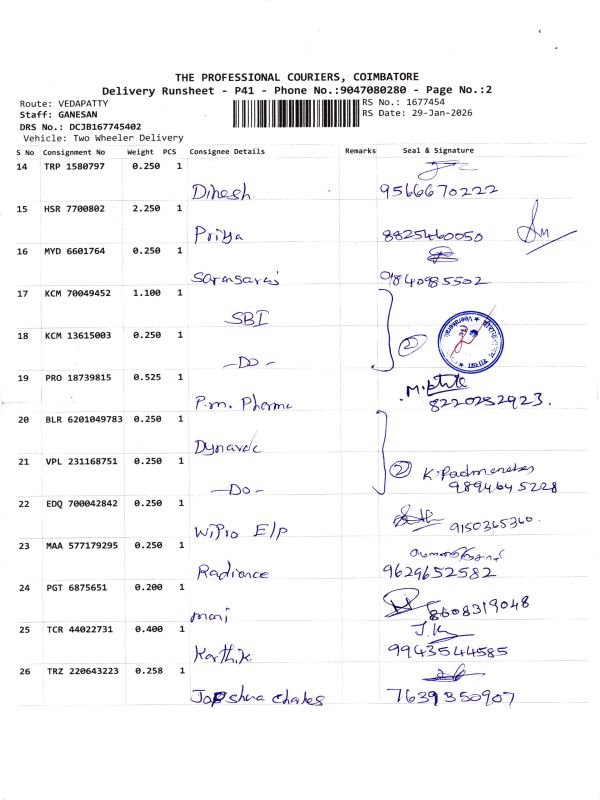 THE PROFESSIONAL COURIERS, COIMBATORE
Delivery Runsheet - P41 - Phone No.:9047080280 - Page No.:2
Route: VEDAPATTY RS No.: 1677454
Staff: GANESAN RS Date: 29-Jan-2026
DRS No.: DCJB167745402
Vehicle: Two Wheeler Delivery
S No Consignment No Weight PCS Consignee Details Remarks Seal & Signature
14 TRP 1580797 0.250 1
Dinesh 9566670222
15 HSR 7700802 2.250 1
Priya 8825460050
16 MYD 6601764 0.250 1
9840985502
17 KCM 70049452 1.100 1
SBI
18 KCM 13615003 0.250 1
2
-DO-
19 PRO 18739815 0.525 1
P.m. Pharma 8220252923.
20 BLR 6201049783 0.250 1
21 VPL 231168751 0.250 1
2
-DO- 9894645228
22 EDQ 700042842 0.250 1
WiPro E/P 9150365360.
23 MAA 577179295 0.250 1
Radiance 9629652582
24 PGT 6875651 0.200 1
mani 8608319048
25 TCR 44022731 0.400 1
J.K
Karthik 9943544585
26 TRZ 220643223 0.258 1
7639350907